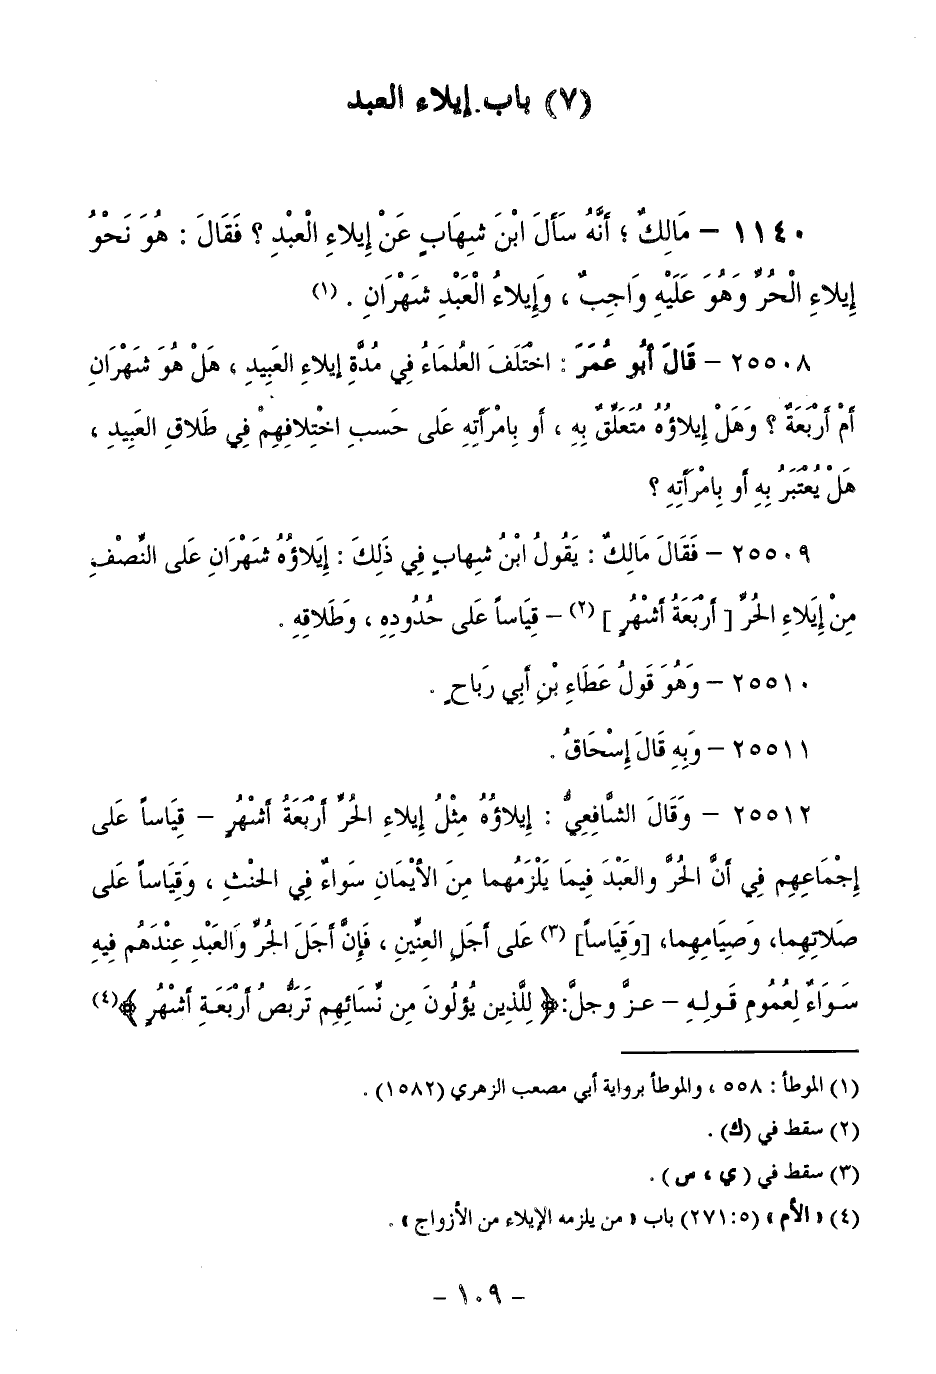 (٧) باب إيلاء العبد
١١٤٠ – مَالِكٌ ؛ أَنَّهُ سَأَلَ ابْنَ شِهَابٍ عَنْ إِيلاءِ الْعَبْدِ ؟ فَقَالَ : هُوَ نَحْوُ
إِيلاءِ الْحُرِّ وَهُوَ عَلَيْهِ وَاجِبٌ ، وَإِيلاءُ الْعَبْدِ شَهْرَانِ . (١)
٢٥٥٠٨ – قَالَ أَبُو عُمَرَ : اخْتَلَفَ العُلَمَاءُ فِي مُدَّةِ إِيلاءِ العَبِيدِ ، هَلْ هُوَ شَهْرَانِ
أَمْ أَرْبَعَةٌ ؟ وَهَلْ إِيلاؤُهُ مُتَعَلِّقٌ بِهِ ، أَو بِامْرَأَتِهِ عَلى حَسبِ اخْتِلافِهِمْ فِي طَلاقِ العَبِيدِ ،
هَلْ يُعْتَبَرُ بِهِ أَو بِامْرَأَتِهِ ؟
٢٥٥٠٩ – فَقَالَ مَالِكٌ : يَقُولُ ابْنُ شِهابٍ فِي ذَلِكَ : إِيَلاؤُهُ شَهْرَانِ عَلى النِّصْفِ
مِنْ إِيَلاءِ الحُرِّ [ أَرْبَعَةُ أَشْهُرٍ ] (٢) – قِيَاساً عَلى حُدُودِهِ ، وَطَلاقِهِ .
٢٥٥١٠ – وَهُوَ قَولُ عَطَاءِ بْنِ أَبِي رَبَاحٍ .
٢٥٥١١ – وَبِهِ قَالَ إِسْحَاقُ .
٢٥٥١٢ – وَقَالَ الشَّافِعِيُّ : إِيلاؤُهُ مِثْلُ إِيلاءِ الحُرِّ أَرْبَعَةُ أَشْهُرٍ – قِيَاساً عَلى
إِجْمَاعِهِم فِي أَنَّ الحُرَّ والعَبْدَ فِيمَا يَلْزَمُهُما مِنَ الأَيْمَانِ سَواءٌ فِي الحنْثِ ، وَقِيَاساً عَلى
صَلاتِهِما، وَصِيَامِهِما، [وَقِيَاساً] (٣) عَلى أَجَلِ العِنِّينِ ، فَإِنَّ أَجَلَ الحُرِّ وَالعَبْدِ عِنْدَهُم فِيهِ
سَوَاءٌ لِعُمُومِ قَولِهِ – عزَّ وجلَّ: ﴿ لِلَّذِينِ يُؤْلُونَ مِن نِّسَائِهِم تَرَبُّصُ أَرْبَعَةِ أَشْهُرٍ ﴾(٤)
(١) الموطأ : ٥٥٨ ، والموطأ برواية أبي مصعب الزهري (١٥٨٢) .
(٢) سقط في (ك) .
(٣) سقط في ( ي ، س ) .
(٤) « الأم » (٢٧١:٥) باب « من يلزمه الإيلاء من الأزواج » .
– ١٠٩ –